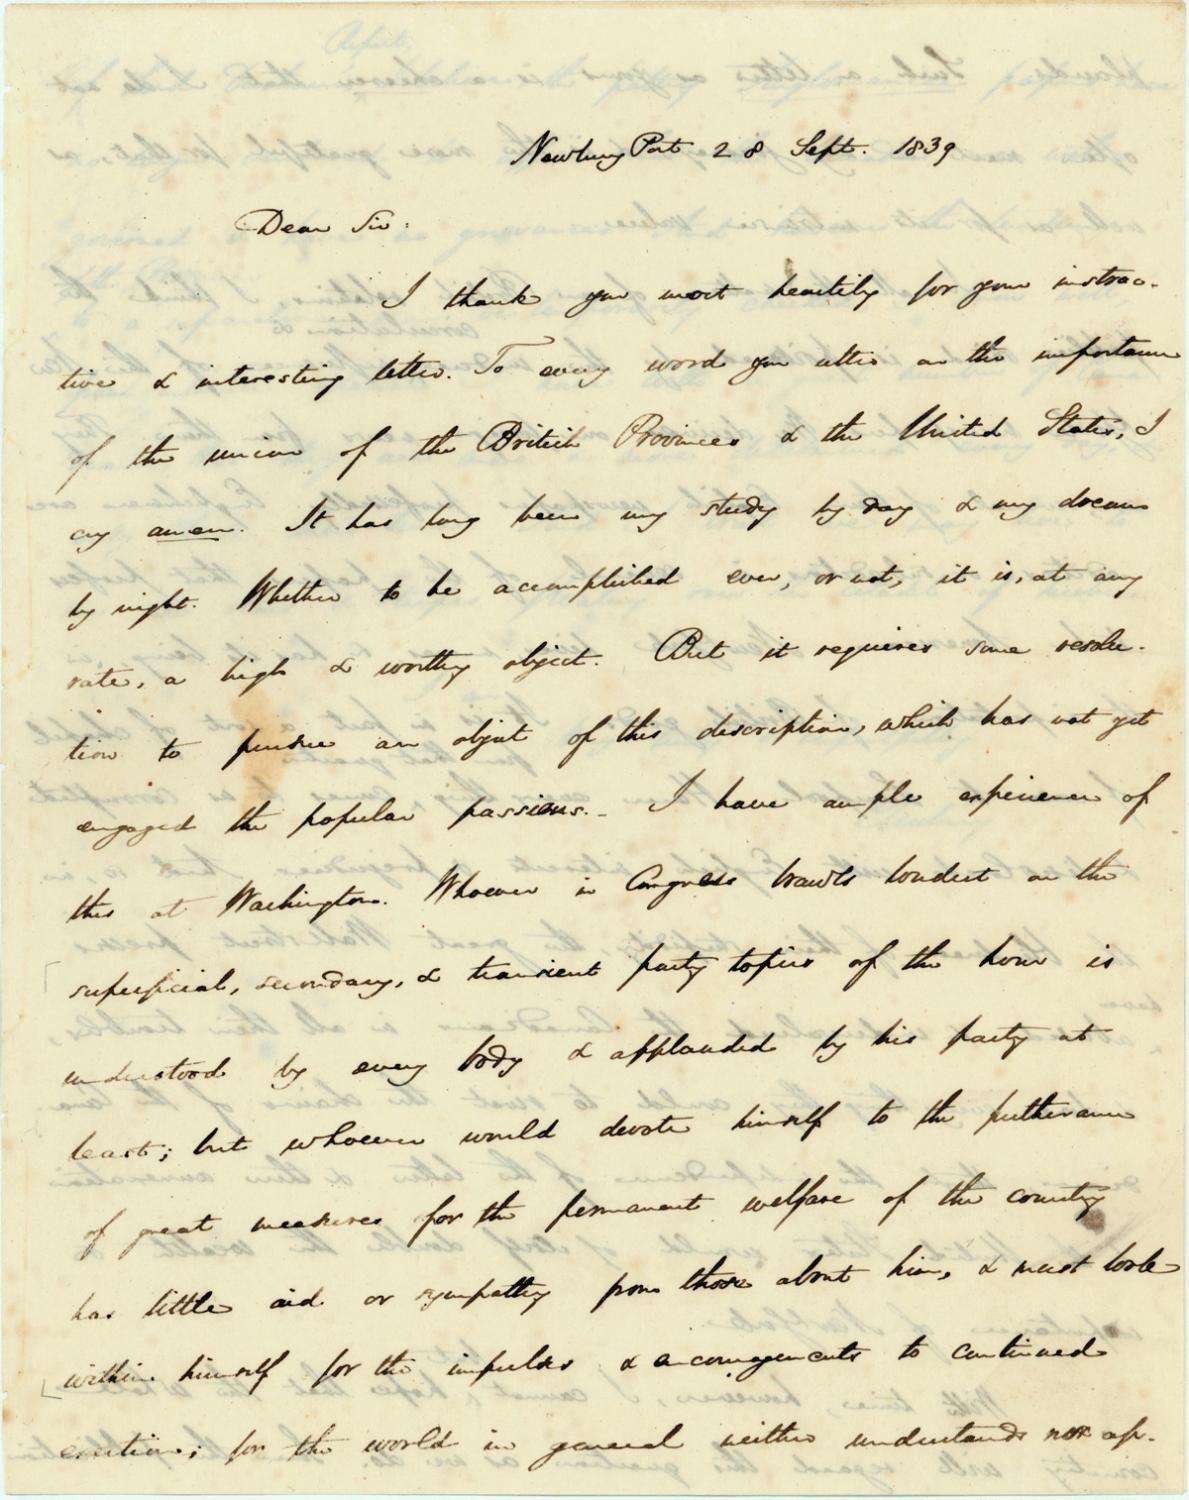 Newbury Port 28 Sept. 1839
Dear Sir:
I thank you most heartily for your instruc-
tive & interesting letter. To every word you utter on the importance
of the union of the British Provinces & the United States, I
cry amen. It has long been my study by day & my dream
by night. Whether to be accomplished ever, or not, it is, at any
rate, a high & worthy object. But it requires some resolu-
tion to pursue an object of this description, which has not yet
engaged the popular passions. – I have ample experience of
this at Washington. Whoever in Congress brawls loudest on the
superficial, secondary, & transient party topics of the hour is
understood by every body & applauded by his party at
least; but whoever would devote himself to the furtherance
of great measures for the permanent welfare of the country
has little aid or sympathy from those about him, & must look
within himself for the impulses & encouragements to continued
exertion; for the world in general neither understands nor ap-